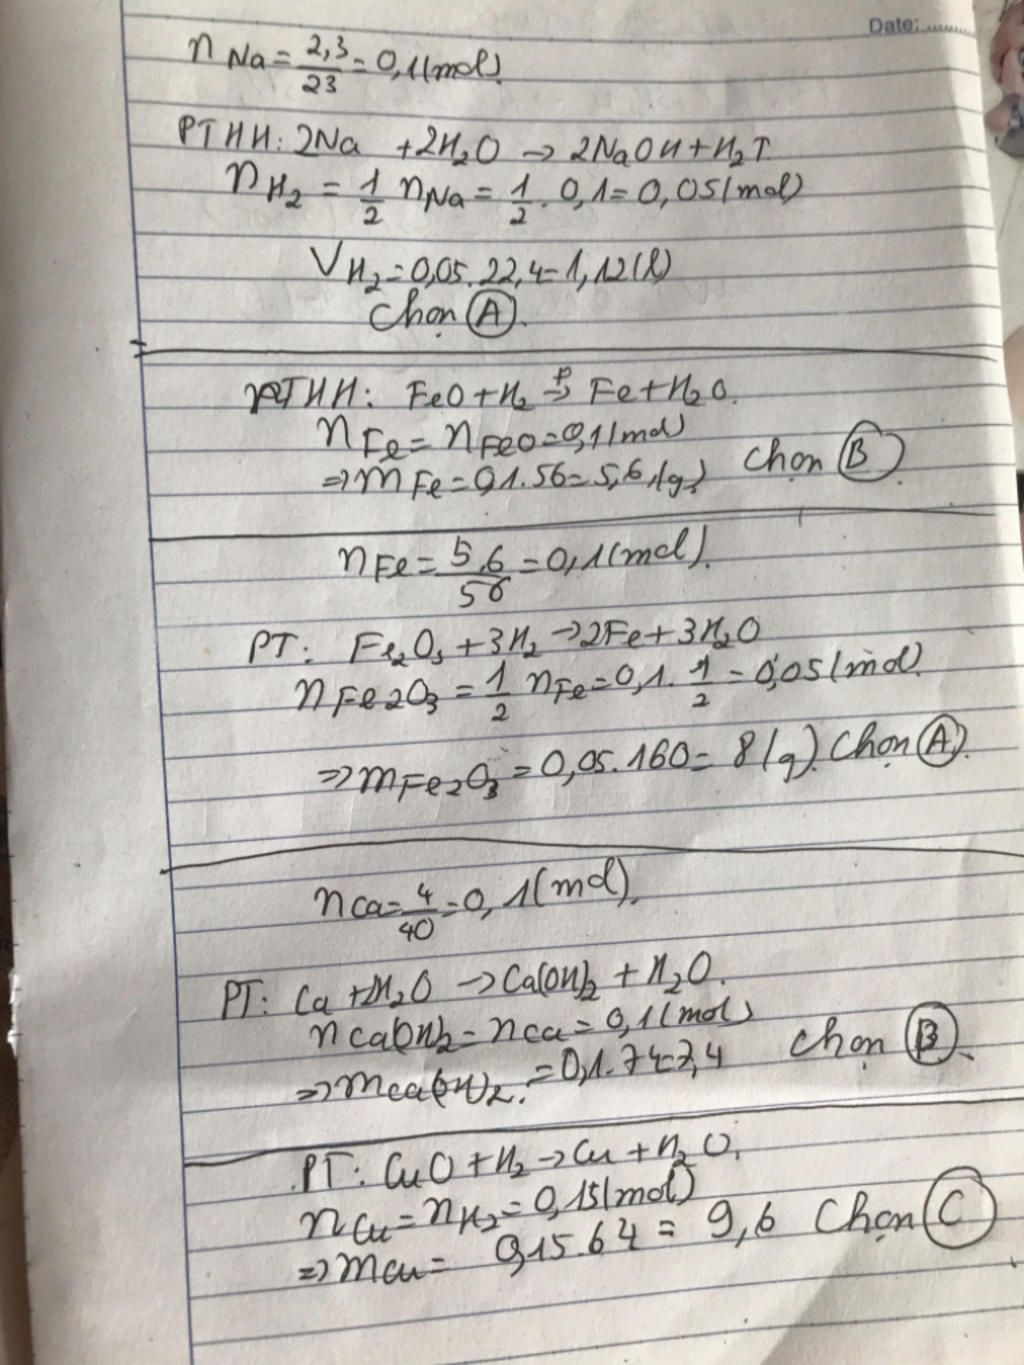 Date: ..........
n Na = 2,3/23 = 0,1(mol).
PTHH: 2Na + 2H₂O → 2NaOH + H₂↑.
n H₂ = 1/2 n Na = 1/2 . 0,1 = 0,05(mol)
V H₂ = 0,05.22,4 = 1,12(l)
Chọn Ⓐ.
PTHH: FeO + H₂ → Fe + H₂O.
n Fe = n FeO = 0,1(mol)
⇒ m Fe = 0,1.56 = 5,6(g) Chọn Ⓑ.
n Fe = 5,6/56 = 0,1(mol).
PT: Fe₂O₃ + 3H₂ → 2Fe + 3H₂O
n Fe₂O₃ = 1/2 n Fe = 0,1. 1/2 = 0,05(mol).
⇒ m Fe₂O₃ = 0,05.160 = 8(g). Chọn Ⓐ.
n Ca = 4/40 = 0,1(mol).
PT: Ca + 2H₂O → Ca(OH)₂ + H₂O.
n Ca(OH)₂ = n Ca = 0,1(mol)
⇒ m Ca(OH)₂. = 0,1.74 = 7,4 Chọn Ⓑ.
PT: CuO + H₂ → Cu + H₂O.
n Cu = n H₂ = 0,15(mol)
⇒ m Cu = 0,15.64 = 9,6 Chọn Ⓒ